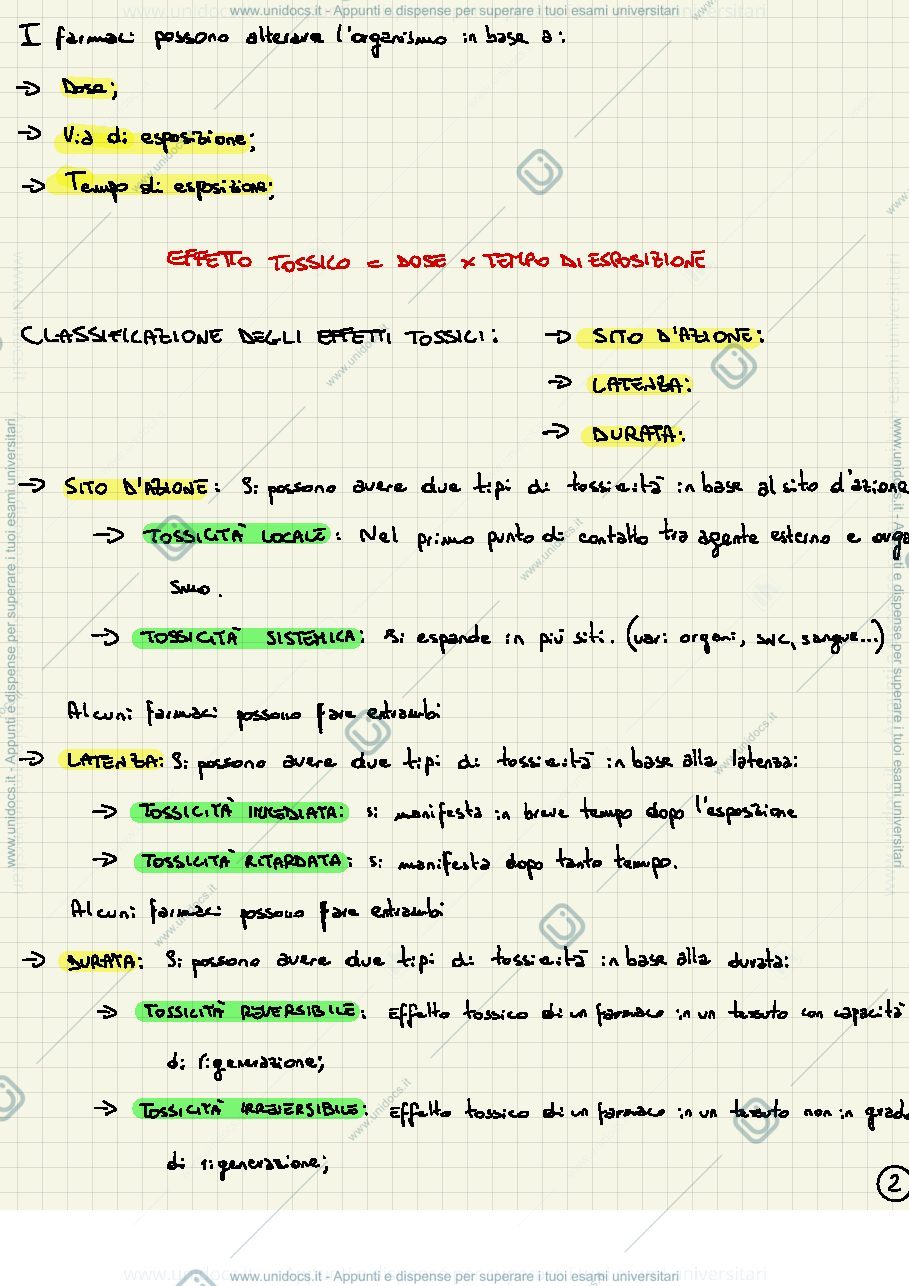 www.unidocs.it - Appunti e dispense per superare i tuoi esami universitari
I farmaci possono alterare l'organismo in base a:
→ Dose;
→ Via di esposizione;
→ Tempo di esposizione;
EFFETTO TOSSICO = DOSE x TEMPO DI ESPOSIZIONE
CLASSIFICAZIONE DEGLI EFFETTI TOSSICI: → SITO D'AZIONE:
→ LATENZA:
→ DURATA:
→ SITO D'AZIONE: Si possono avere due tipi di tossicità in base al sito d'azione
→ TOSSICITÀ LOCALE: Nel primo punto di contatto tra agente esterno e orga
smo.
→ TOSSICITÀ SISTEMICA: si espande in più siti. (vari organi, SNC, sangue...)
Alcuni farmaci possono fare entrambi
→ LATENZA: Si possono avere due tipi di tossicità in base alla latenza:
→ TOSSICITÀ IMMEDIATA: si manifesta in breve tempo dopo l'esposizione
→ TOSSICITÀ RITARDATA: si manifesta dopo tanto tempo.
Alcuni farmaci possono fare entrambi
→ DURATA: Si possono avere due tipi di tossicità in base alla durata:
→ TOSSICITÀ REVERSIBILE: Effetto tossico di un farmaco in un tessuto con capacità
di rigenerazione;
→ TOSSICITÀ IRREVERSIBILE: Effetto tossico di un farmaco in un tessuto non in grado
di rigenerazione;
2
www.unidocs.it - Appunti e dispense per superare i tuoi esami universitari